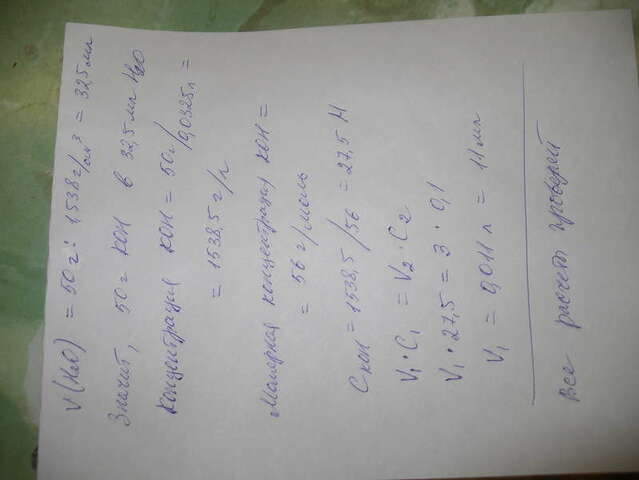 V(H2O) = 50г : 1538г/см³ = 325мл
Значит, 50г KOH в 32,5мл H2O
Концентрация KOH = 50г/0,0325л =
= 1538,5 г/л
Молярная концентрация KOH =
= 56 г/моль
C KOH = 1538,5/56 = 27,5 М
V₁ · C₁ = V₂ · C₂
V₁ · 27,5 = 3 · 0,1
V₁ = 0,011 л = 11 мл
Все расчеты проверяй